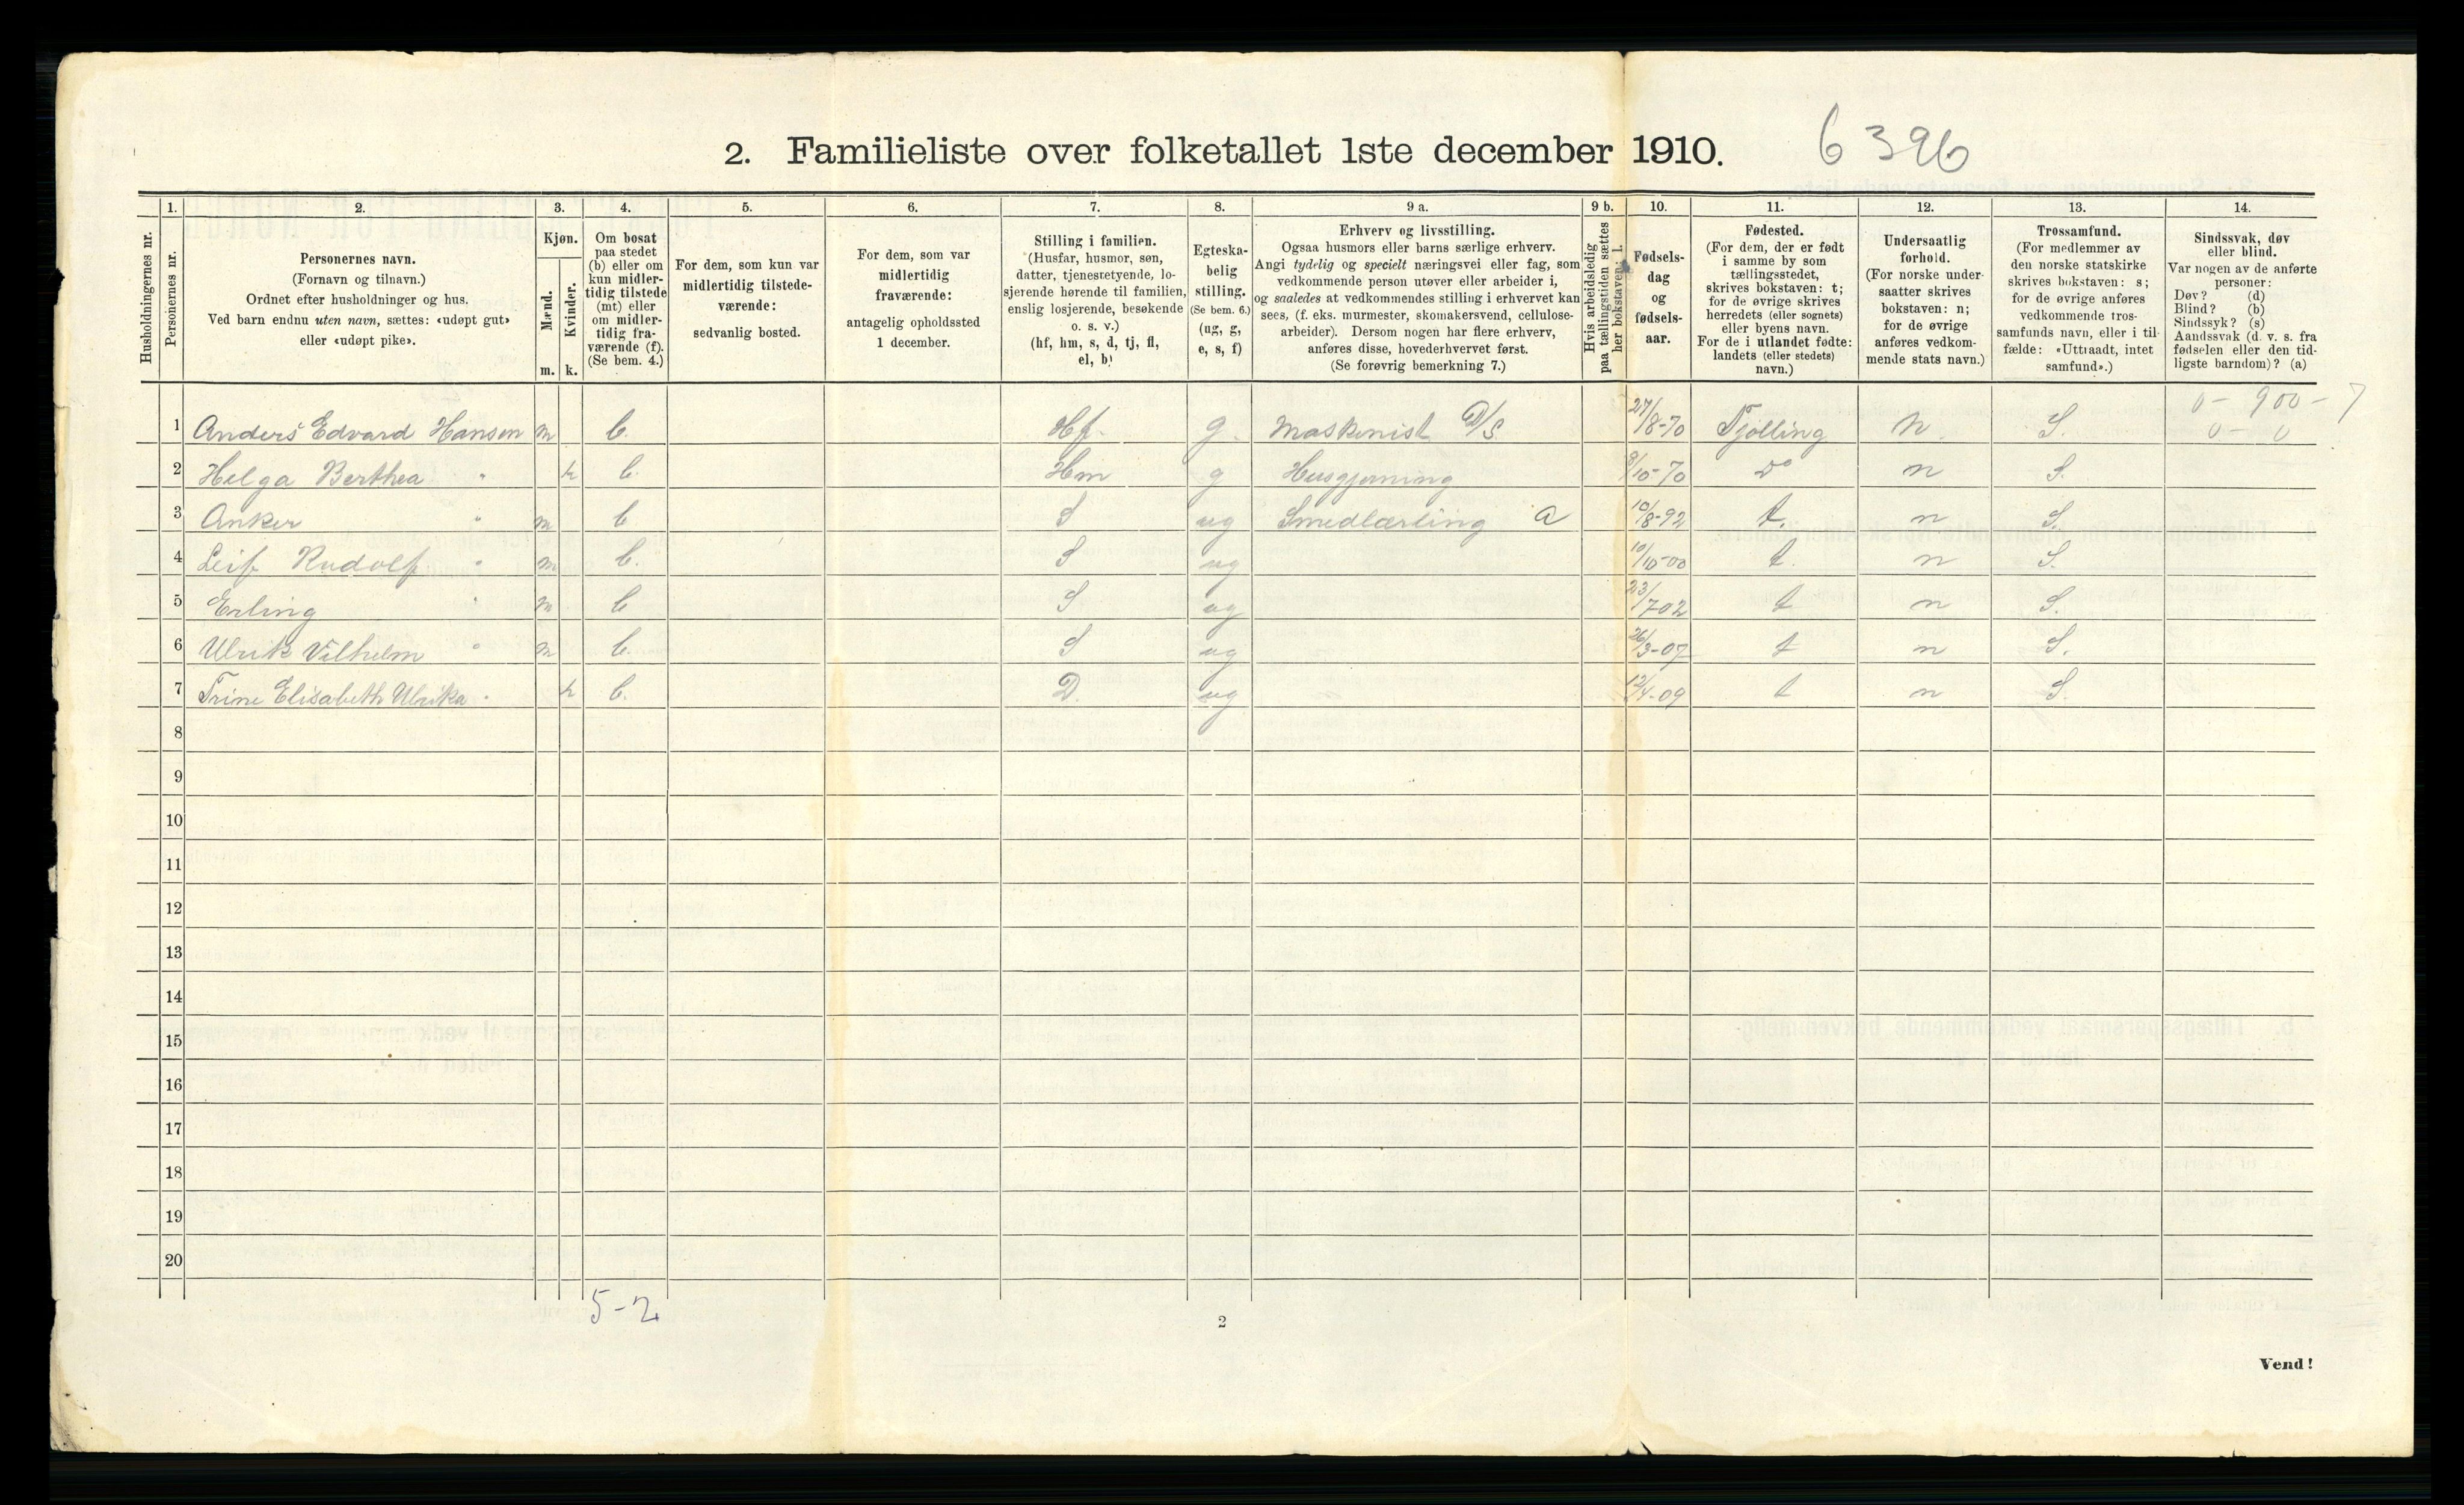 2. Familieliste over folketallet 1ste december 1910.
6396
Husholdningernes nr.
1.
Personernes nr.
2.
Personernes navn.
(Fornavn og tilnavn.)
Ordnet efter husholdninger og hus.
Ved barn endnu uten navn, sættes: «udøpt gut»
eller «udøpt pike».
3.
Kjøn.
Mænd.
m.
Kvinder.
k.
4.
Om bosat
paa stedet
(b) eller om
kun midler-
tidig tilstede
(mt) eller
om midler-
tidig fra-
værende (f).
(Se bem. 4.)
5.
For dem, som kun var
midlertidig tilstede-
værende:
sedvanlig bosted.
6.
For dem, som var
midlertidig
fraværende:
antagelig opholdssted
1 december.
7.
Stilling i familien.
(Husfar, husmor, søn,
datter, tjenestetyende, lo-
sjerende hørende til familien,
enslig losjerende, besøkende
o. s. v.)
(hf, hm, s, d, tj, fl,
el, b)
8.
Egteska-
belig
stilling.
(Se bem. 6.)
(ug, g,
e, s, f)
9 a.
Erhverv og livsstilling.
Ogsaa husmors eller barns særlige erhverv.
Angi tydelig og specielt næringsvei eller fag, som
vedkommende person utøver eller arbeider i,
og saaledes at vedkommendes stilling i erhvervet kan
sees, (f. eks. murmester, skomakersvend, cellulose-
arbeider). Dersom nogen har flere erhverv,
anføres disse, hovederhvervet først.
(Se forøvrig bemerkning 7.)
9 b.
Hvis arbeidsledig
paa tællingstiden sættes
her bokstaven: l.
10.
Fødsels-
dag
og
fødsels-
aar.
11.
Fødested.
(For dem, der er født
i samme by som
tællingsstedet,
skrives bokstaven: t;
for de øvrige skrives
herredets (eller sognets)
eller byens navn.
For de i utlandet fødte:
landets (eller stedets)
navn.)
12.
Undersaatlig
forhold.
(For norske under-
saatter skrives
bokstaven: n;
for de øvrige
anføres vedkom-
mende stats navn.)
13.
Trossamfund.
(For medlemmer av
den norske statskirke
skrives bokstaven: s;
for de øvrige anføres
vedkommende tros-
samfunds navn, eller i til-
fælde: «Uttraadt, intet
samfund».)
14.
Sindssvak, døv
eller blind.
Var nogen av de anførte
personer:
Døv? (d)
Blind? (b)
Sindssyk? (s)
Aandssvak (d. v. s. fra
fødselen eller den tid-
ligste barndom)? (a)
0 - 900 - 7
0 - 0
1 Anders Edvard Hansen m b. Hf. g. Maskinist D/S 27/8-70 Tjølling n. S.
2 Helga Berthea " k b. Hm g Husgjerning 8/10-70 Do n S.
3 Anker " m b S ug Smedlærling a 10/8-92 t. n S.
4 Leif Rudolf " m b. S ug 10/10-00 t. n S.
5 Erling " m b S ug 23/7 02 t n S.
6 Ulrik Vilhelm " m b. S ug 26/3-07 t n S.
7 Trine Elisabeth Ulrika " k b. D. ug 12/4-09 t n S.
8
9
10
11
12
13
14
15
16
17
18
19
20
5-2
2
Vend!